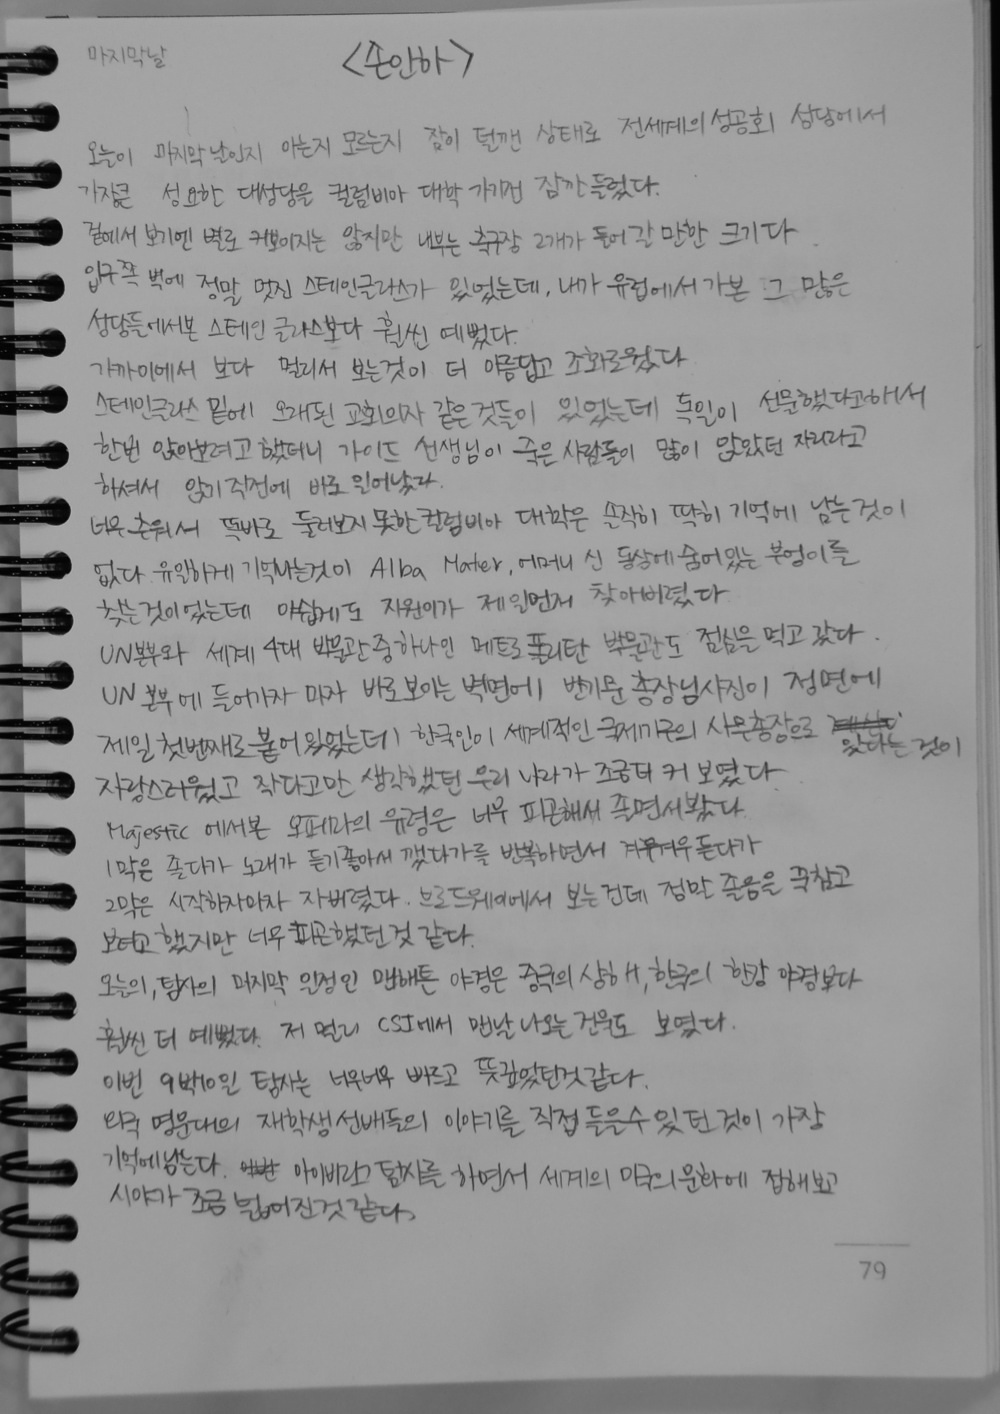 마지막날
<손안하>
오늘이 마지막날인지 아는지 모르는지 잠이 덜깬 상태로 전세계의 성공회 성당에서
가장큰 성요한 대성당을 컬럼비아 대학 가기전 잠깐 들렀다.
겉에서 보기엔 별로 커보이지는 않지만 내부는 축구장 2개가 들어갈 만한 크기다.
입구쪽 벽에 정말 멋진 스테인글라스가 있었는데, 내가 유럽에서 가본 그 많은
성당들에서본 스테인 글라스보다 훨씬 예뻤다.
가까이에서 보다 멀리서 보는것이 더 아름답고 조화로웠다.
스테인글라스 밑에 오래된 교회의자 같은것들이 있었는데 독일이 선물했다고하셔서
한번 앉아보려고 했더니 가이드 선생님이 죽은 사람들이 많이 앉았던 자리라고
하셔서 앉기 직전에 바로 일어났다.
너무 추워서 똑바로 둘러보지 못한 컬럼비아 대학은 손작히 딱히 기억에 남는것이
없다. 유일하게 기억나는것이 Alba Mater, 어머니 신 동상에 숨어있는 부엉이를
찾는것이었는데 아쉽게도 지원이가 제일먼저 찾아버렸다
UN본부와 세계 4대 박물관중 하나인 메트로폴리탄 박물관도 점심을 먹고 갔다.
UN 본부에 들어가자 마자 바로 보이는 벽면에 반기문 총장님사진이 정면에
제일 첫번째로 붙어 있었는데 한국인이 세계적인 국제기구의 사무총장으로 있다는 것이
자랑스러웠고 작다고만 생각했던 우리 나라가 조금더 커 보였다.
Majestic 에서본 오페라의 유령은 너무 피곤해서 졸면서봤다.
1막은 졸다가 노래가 듣기좋아서 깼다가를 반복하면서 겨우겨우 듣다가
2막은 시작하자마자 자버렸다. 브로드웨이에서 보는건데 정말 졸음을 꾹참고
보려고 했지만 너무 피곤했던것 같다.
오늘의, 탐사의 마지막 일정인 맨해튼 야경은 중국의 상하이, 한국의 한강 야경보다
훨씬 더 예뻤다. 저 멀리 CSI에서 맨날 나오는 건물도 보였다.
이번 9박10일 탐사는 너무너무 빠르고 뜻깊었던것 같다.
미국 명문대의 재학생 선배들의 이야기를 직접 들을수 있던 것이 가장
기억에 남는다. 아이비리그 탐사를 하면서 세계의 미국의 문화에 접해보고
시야가 조금 넓어진것 같다.
79